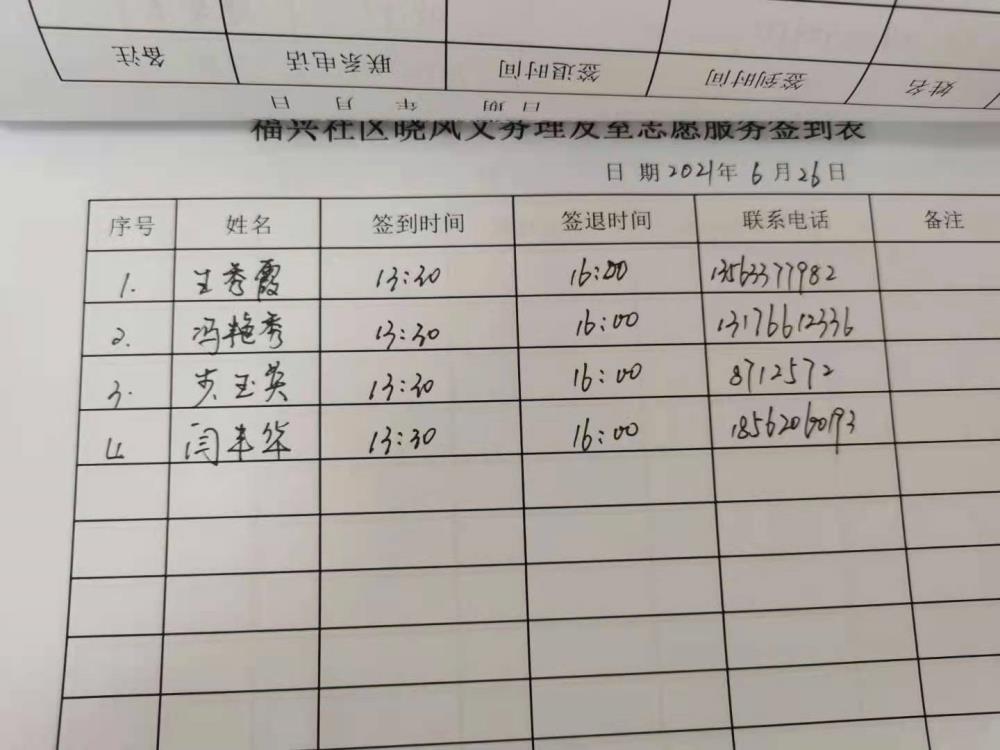 备注 联系电话 签退时间 签到时间 姓名
日期 年 月 日
福兴社区晓风义务理发室志愿服务签到表
日期2021年6月26日
序号 姓名 签到时间 签退时间 联系电话 备注
1. 王秀霞 13:30 16:00 13563377982
2. 冯艳秀 13:30 16:00 13176612336
3. 步玉英 13:30 16:00 8712572
4 闫丰华 13:30 16:00 18562060193